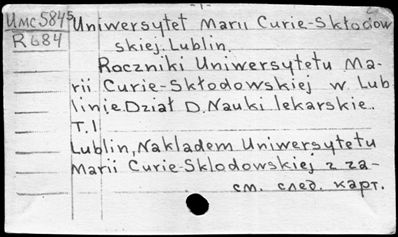 -1-
Uмс5845 Uniwersytet Marii Curie-Skłodow
R684
skiej. Lublin.
Roczniki Uniwersytetu Ma-
rii Curie-Skłodowskiej w Lub
linie. Dział D. Nauki lekarskie.
T.1
Lublin, Nakladem Uniwersytetu
Marii Curie-Sklodowskiej z za-
см. след. карт.